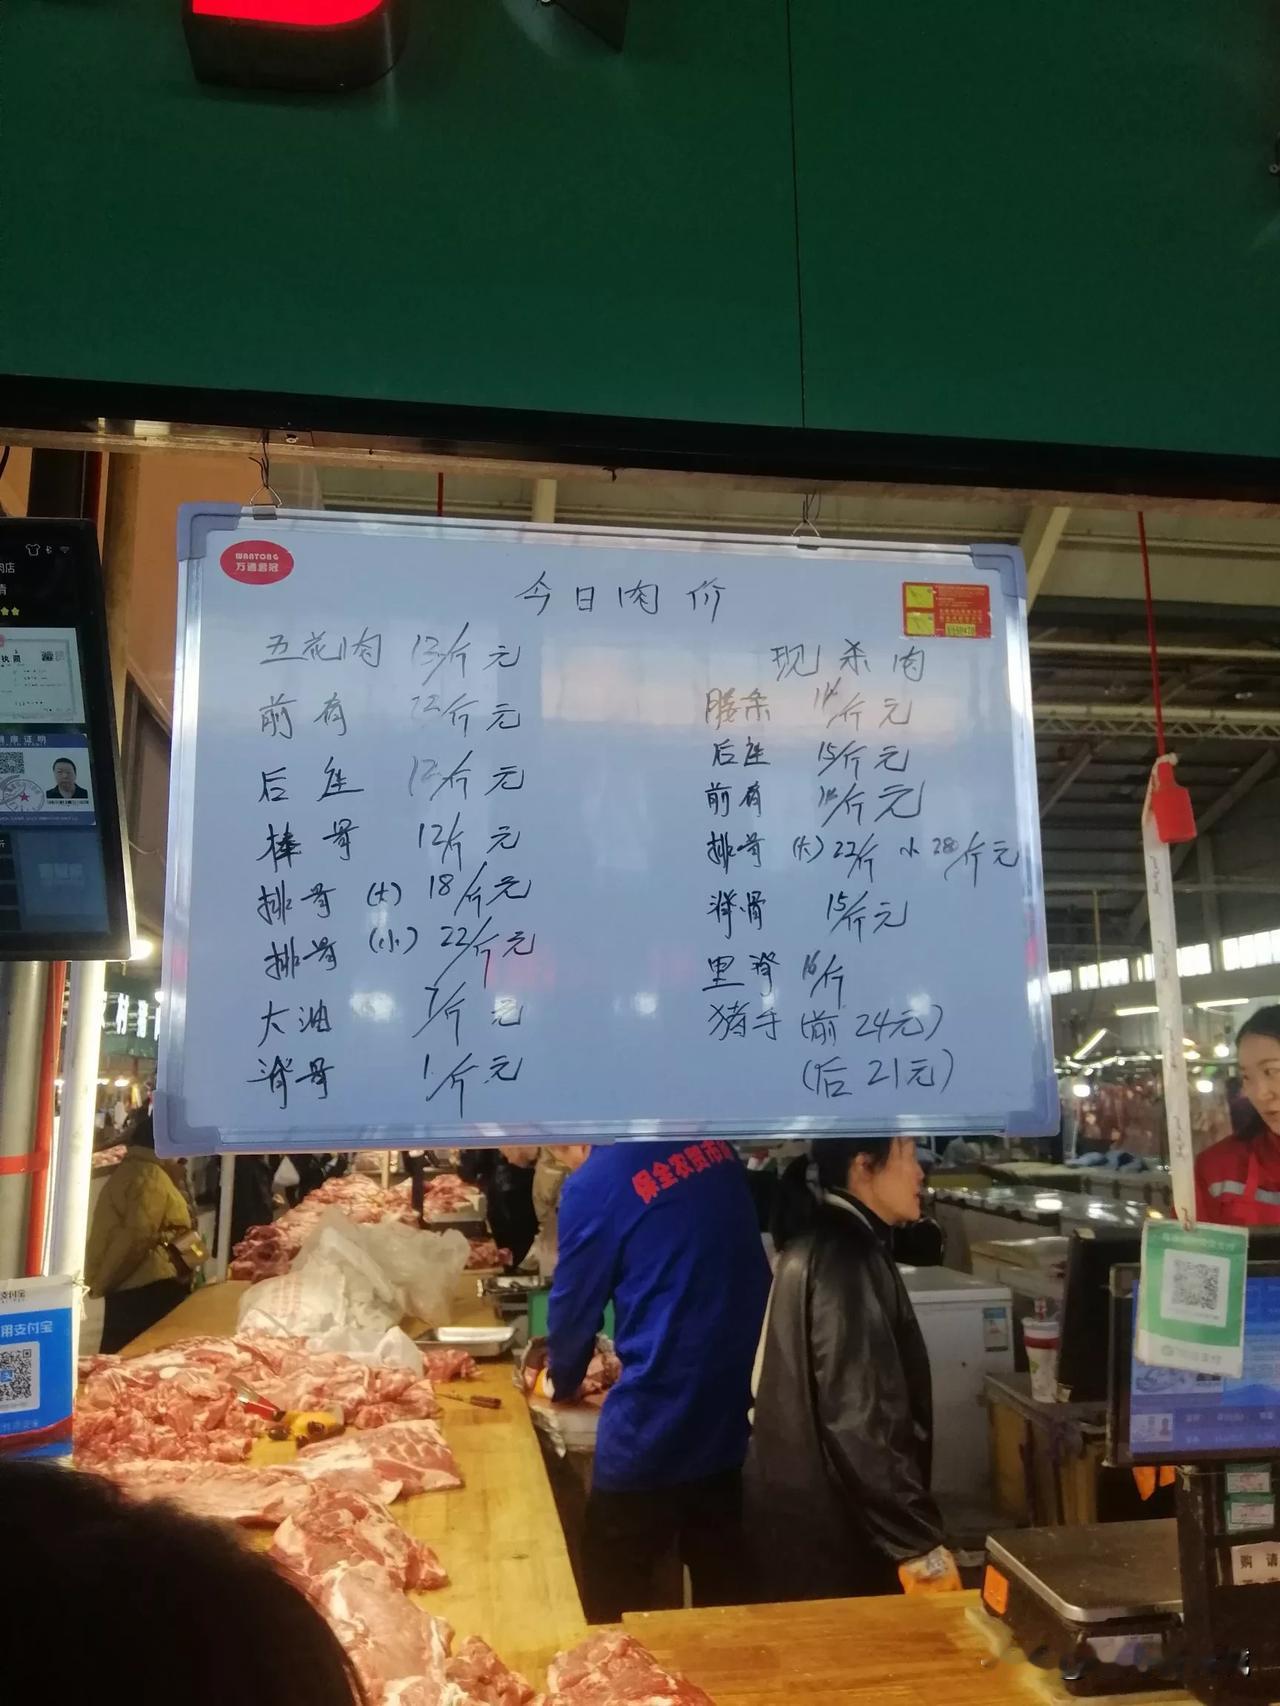 WANTONG
今日肉价
五花肉 13/斤元
前肩 12/斤元
后座 12/斤元
棒骨 12/斤元
排骨 (大) 18/斤元
排骨 (小) 22/斤元
大油 7/斤元
脊骨 1/斤元
现杀肉
14/斤元
后座 15/斤元
前肩 14/斤元
排骨 (大) 22/斤 小 28/斤元
脊骨 15/斤元
里脊 16/斤
猪手 (前 24元)
(后 21元)
保全农贸市
用支付宝
购 请